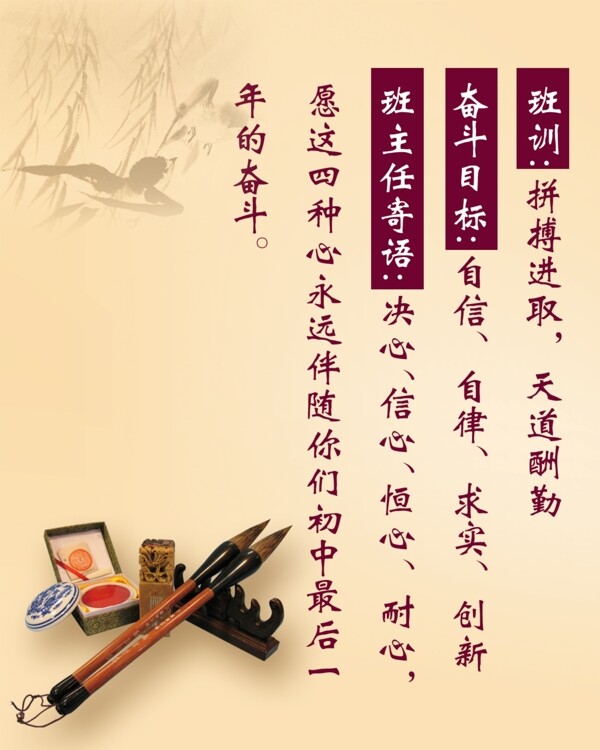 班训：拼搏进取，天道酬勤
奋斗目标：自信、自律、求实、创新
班主任寄语：决心、信心、恒心、耐心，
愿这四种心永远伴随你们初中最后一
年的奋斗。